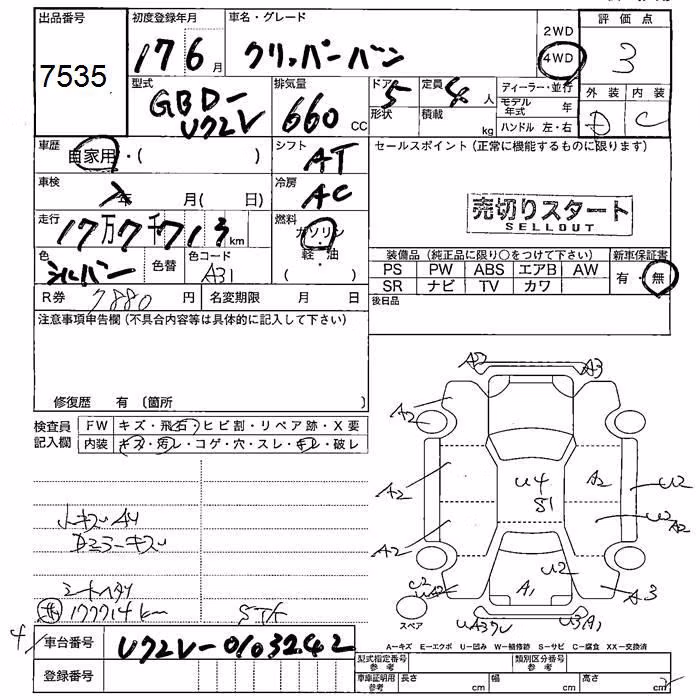 出品番号
7535
初度登録年月
17 6月
車名・グレード
クリッパーバン
2WD
4WD
評価点
3
型式
GBD-
U72V
排気量
660 CC
ドア
5
形状
定員
4人
積載
kg
ディーラー・並行
モデル年式 年
ハンドル 左・右
外装 内装
D C
車歴
自家用・( )
シフト
AT
セールスポイント(正常に機能するものに限ります)
車検
年 月( 日)
冷房
AC
売切りスタート
SELLOUT
走行
17万7千713km
燃料
ガソリン
・
軽・油
色
シルバー
色替
色コード
A31
装備品(純正品に限り○をつけて下さい)
新車保証書
PS PW ABS エアB AW
有・無
SR ナビ TV カワ
R券 7880円
名変期限 月 日
後日品
注意事項申告欄(不具合内容等は具体的に記入して下さい)
修復歴 有〔箇所
検査員記入欄
FW キズ・飛石・ヒビ割・リペア跡・X要
内装 キズ・汚レ・コゲ・穴・スレ・キレ・破レ
A2 A3
A2
A2 U4 A2 U2
S1
A2 U2 A2
U2
A1
A3
小キズAU
Dミラーキズ
177714km
スペア
車台番号 U72V-0103242
登録番号
A−キズ E−エクボ U−凹み W−補修跡 S−サビ C−腐食 XX−交換済
型式指定番号参考
類別区分番号参考
車庫証明用参考
長さ cm 幅 cm 高さ cm